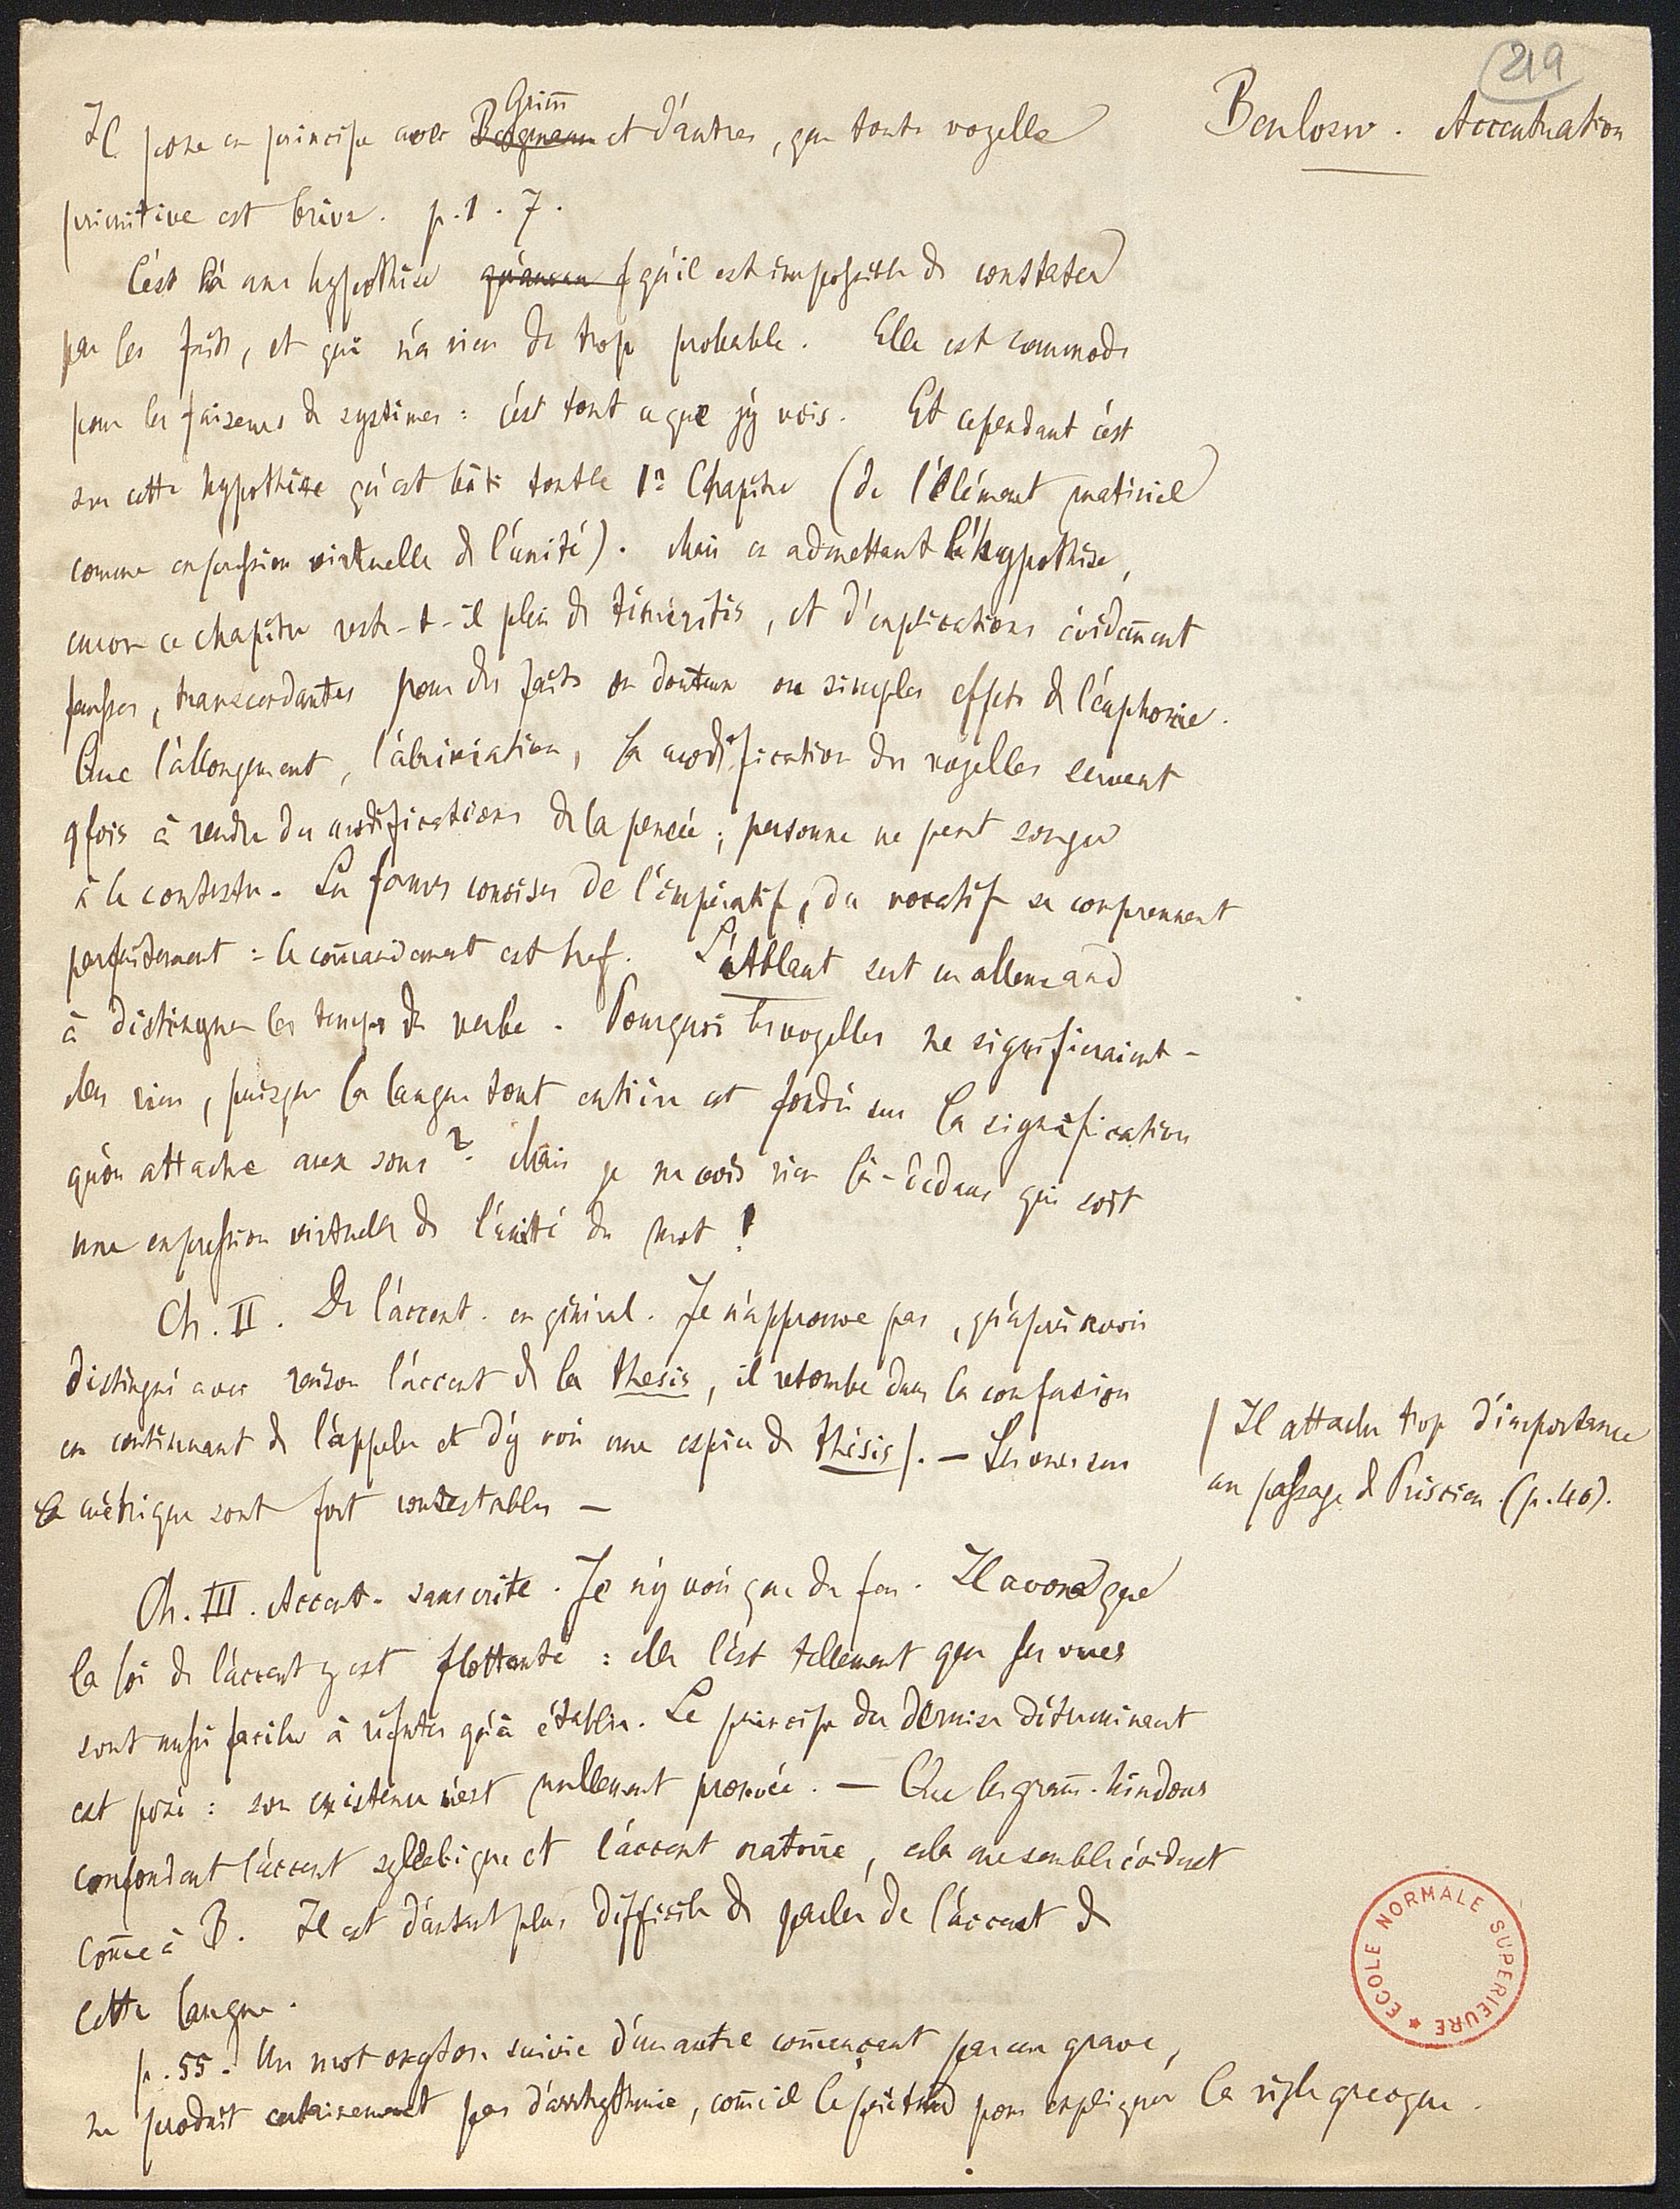 219
Benloew. Accentuation
Grimm
Il pose en principe avec Bergmann et d'autres, que toute voyelle
primitive est brève. p. 1. 7.
C'est là une hypothèse qu'aucun f qu'il est impossible de constater
par les faits, et qui n'a rien de trop probable. Elle est commode
pour les faiseurs de systèmes : c'est tout ce que j'y vois. Et cependant c'est
sur cette hypothèse qu'est bâti tout le 1er Chapitre (de l'élément matériel
comme expression virtuelle de l'unité). Mais en admettant l'hypothèse,
encore ce chapitre reste-t-il plein de témérités, et d'explications évidem̄ent
fausses, transcendantes pour des faits ou douteux ou simples effets de l'euphonie.
Que l'allongement, l'abréviation, la modification des voyelles servent
qfois à rendre des modifications de la pensée ; personne ne peut songer
à le contester. Les formes concises de l'impératif, du vocatif se comprennent
parfaitement : le com̄andement est bref. L'Ablaut sert en allemand
à distinguer les temps du verbe. Pourquoi les voyelles ne signifieraient-
elles rien, puisque la langue tout entière est fondée sur la signification
qu'on attache aux sons ? Mais je ne vois rien là-dedans qui soit
une expression virtuelle de l'unité du mot !
Ch. II. De l'accent en général. Je n'approuve pas, qu'après avoir
distingué avec raison l'accent de la thesis, il retombe dans la confusion
en continuant de l'appeler et d'y voir une espèce de thésis |. — Ses vues sur
la métrique sont fort contestables —
| Il attache trop d'importance
au passage de Priscien (p. 40).
Ch. III. Accent. sanscrite. Je n'y vois que du feu. Il avoue que
la loi de l'accent y est flottante : elle l'est tellement que ses vues
sont aussi faciles à réfuter qu'à établir. Le principe du dernier déterminant
est posé : son existence n'est nullement prouvée. — Que les gram̄. hindous
confondent l'accent syllabique et l'accent oratoire, cela me semble évident
com̄e à B. Il est d'autant plus difficile de parler de l'accent de
cette langue.
p. 55. Un mot oxyton suivie d'un autre com̄ençant par une grave,
ne produit certainement pas d'arrhythmie, com̄e il le prétend pour expliquer la règle grecque.
ECOLE NORMALE SUPERIEURE